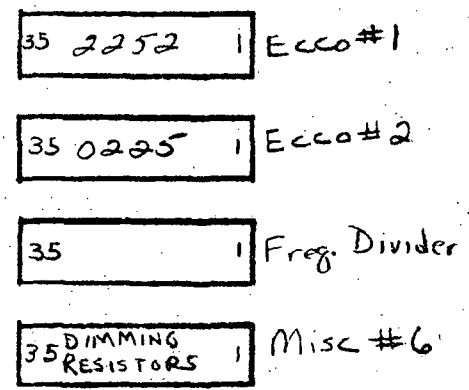 35 2252 1 Ecco #1
35 0225 1 Ecco #2
35 1 Freq. Divider
35 DIMMING RESISTORS 1 Misc #6